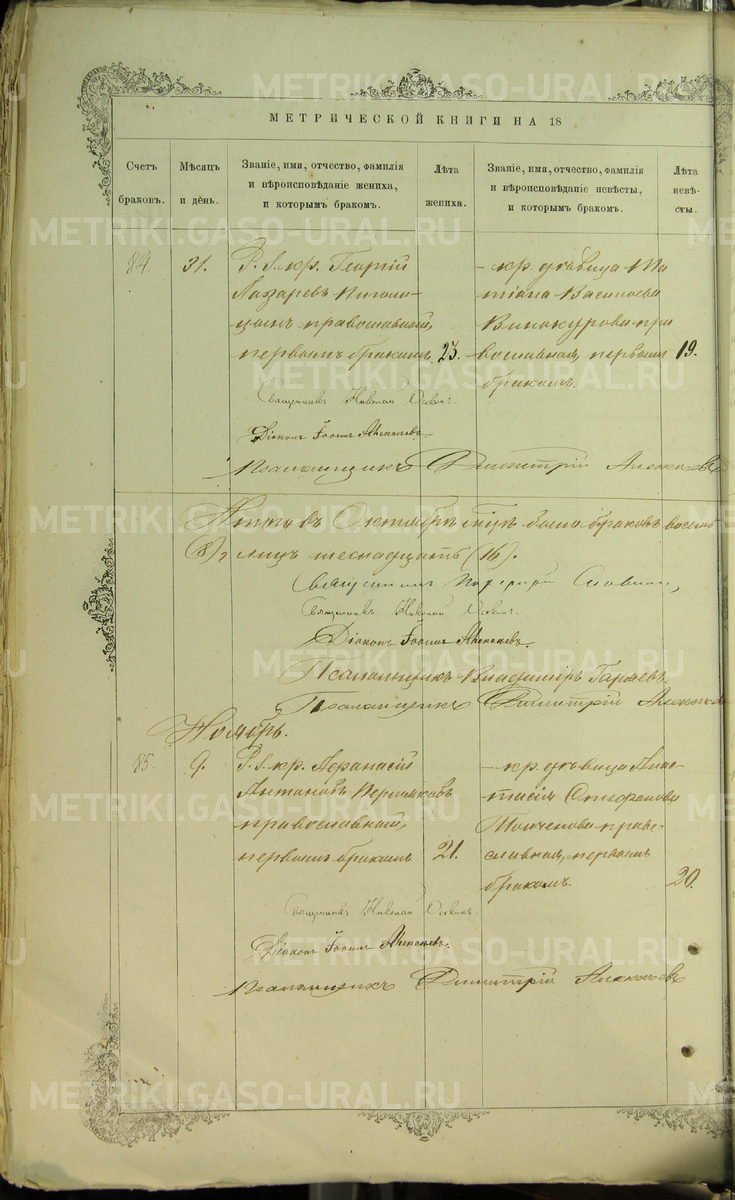 METRIKI.GASO-URAL.RU
МЕТРИЧЕСКОЙ КНИГИ НА 18
Счетъ браковъ.
Мѣсяцъ и день.
Званіе, имя, отчество, фамилія
и вѣроисповѣданіе жениха,
и которымъ бракомъ.
Лѣта
жениха.
Званіе, имя, отчество, фамилія
и вѣроисповѣданіе невѣсты,
и которымъ бракомъ.
Лѣта
невѣ-
сты.
84. 31. Р. З. кр. Георгій
Лазаревъ
православный,
первымъ бракомъ. 23.
- кр. дѣвица Та
тіана Васильева
Винокурова пра
вославная, первымъ 19.
бракомъ.
Священникъ Николай
Діаконъ Іоаннъ Алексѣевъ.
Псаломщикъ Димитрій
Итого въ Октябрѣ м-цѣ было браковъ восемь
(8), лицъ шеснадцать (16).
Священникъ Порфирій Славнин,
Священникъ Николай
Діаконъ Іоаннъ Алексѣевъ.
Псаломщикъ Владиміръ Гаряевъ.
Псаломщикъ Димитрій
Ноябрь.
85. 9. Р. З. кр. Аѳанасій
Антоновъ
православный,
первымъ бракомъ 21.
- кр. дѣвица Анас
тасія Стефанова
право-
славная, первымъ
бракомъ. 20.
Священникъ Николай
Діаконъ Іоаннъ Алексѣевъ.
Псаломщикъ Димитрій